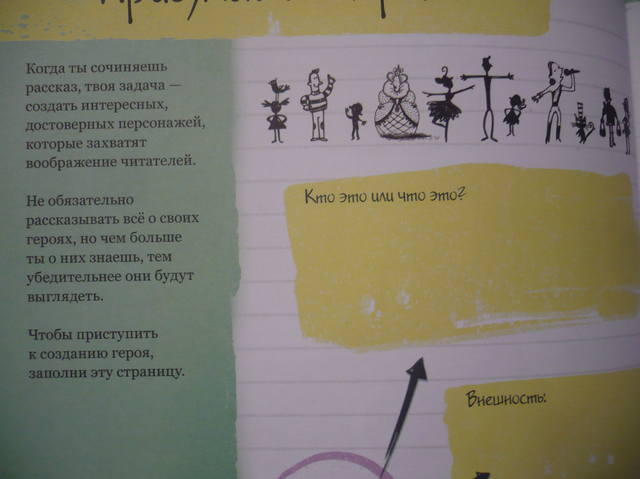 Когда ты сочиняешь
рассказ, твоя задача —
создать интересных,
достоверных персонажей,
которые захватят
воображение читателей.
Не обязательно
рассказывать всё о своих
героях, но чем больше
ты о них знаешь, тем
убедительнее они будут
выглядеть.
Чтобы приступить
к созданию героя,
заполни эту страницу.
Кто это или что это?
Внешность: